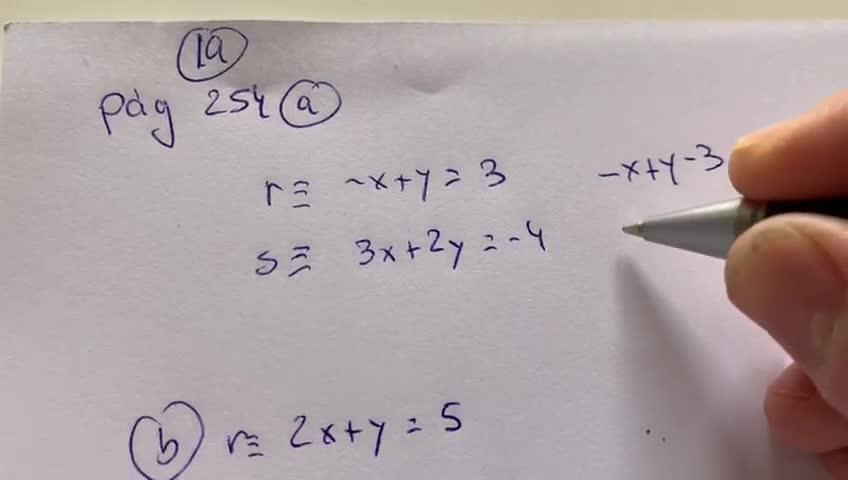 1a
pág 254 a
r ≡ -x+y = 3 -x+y-3
s ≡ 3x+2y = -4
b r ≡ 2x+y = 5